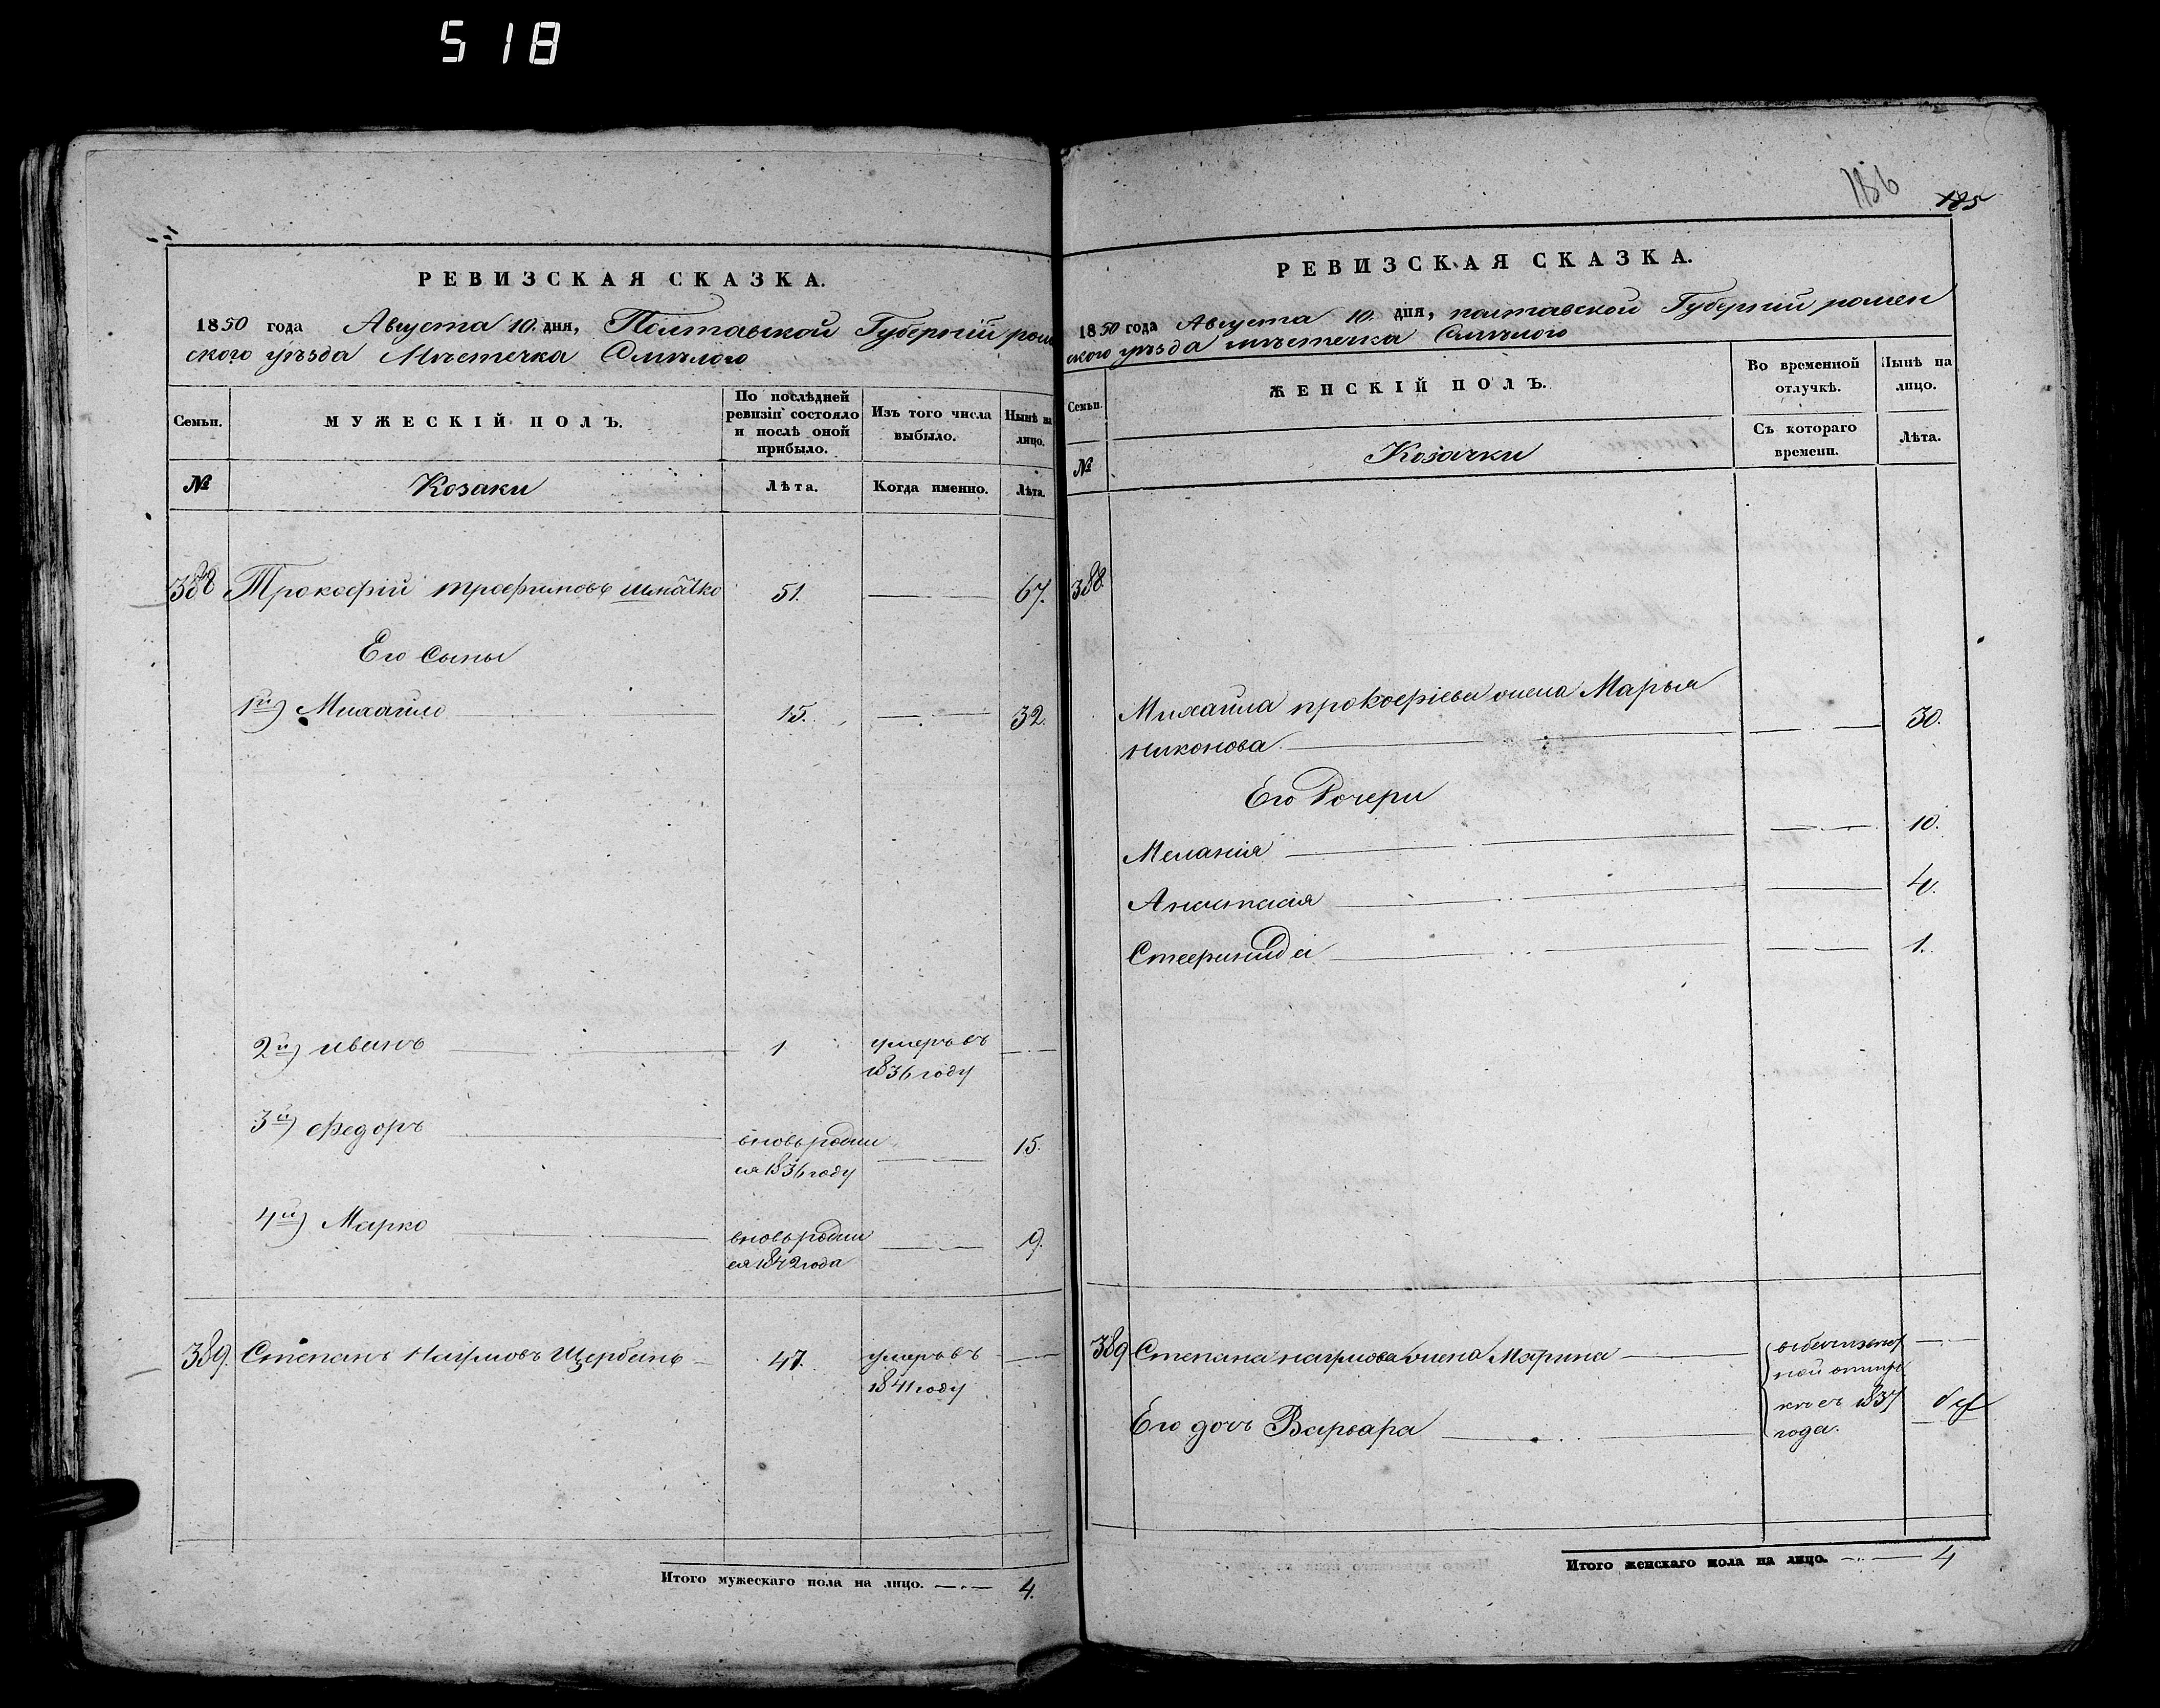 518
РЕВИЗСКАЯ СКАЗКА.
1850 года Августа 10. дня, Полтавской Губернiи ромен
ского уѣзда Мѣстечка Смѣлого
Семьи.
МУЖЕСКІЙ ПОЛЪ.
По послѣдней
ревизіи состояло
и послѣ оной
прибыло.
Изъ того числа
выбыло.
Нынѣ на
лицо.
№
Козаки
Лѣта.
Когда именно.
Лѣта.
388 Прокофій трофимовъ шматко 51. 67.
Его Сыны
1й) Михайло 15. 32.
2й) иванъ 1 умеръ въ
1836 году
3й) Федоръ вновь роdил
ся 1836 году 15.
4й) Марко вновь роdил
ся 1842 года 9.
389. Степанъ Наумовъ Щербань 47. умеръ въ
1841 году
Итого мужескаго пола на лицо. 4.
186
185
РЕВИЗСКАЯ СКАЗКА.
1850 года Августа 10. дня, полтавской Губернiи ромен
ского уѣзда мѣстечка Смѣлого
Семьи.
ЖЕНСКІЙ ПОЛЪ.
Во временной
отлучкѣ.
Нынѣ на
лицо.
№
Козачки
Съ котораго
времени.
Лѣта.
388.
Михаила прокофіева жена Марья
Никонова. 30.
Его Дочери
Меланія 10.
Анастасія 4.
1.
389 Степана наумова жена Марина
Его дочь Варвара
къ съ 1837
года.
Итого женскаго пола на лицо. 4